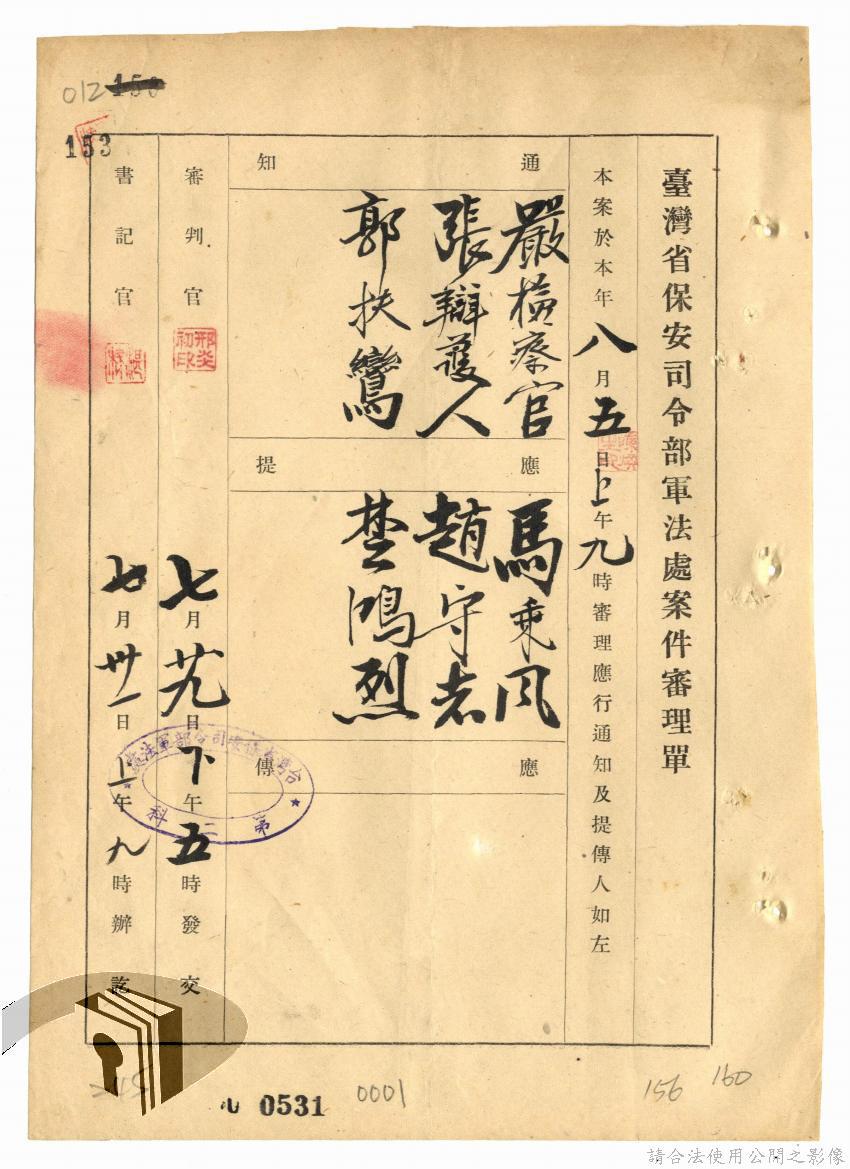 臺灣省保安司令部軍法處案件審理單
本案於本年八月五日上午九時審理應行通知及提傳人如左
通知
嚴檢察官
張辯護人
郭扶鸞
應提
馬乘風
趙守志
楚鴻烈
應傳
審判官 邢炎初印 七月廿九日下午五時發交
書記官 七月卅一日上午九時辦訖
台灣省保安司令部軍法處
第二科
012
150
153
0531
0001
156
160
請合法使用公開之影像